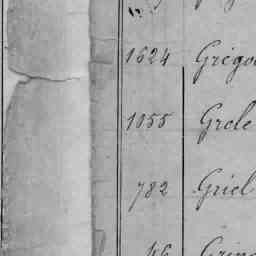 1624 Grégo
1055 Grele
782 Griel
46 Gring